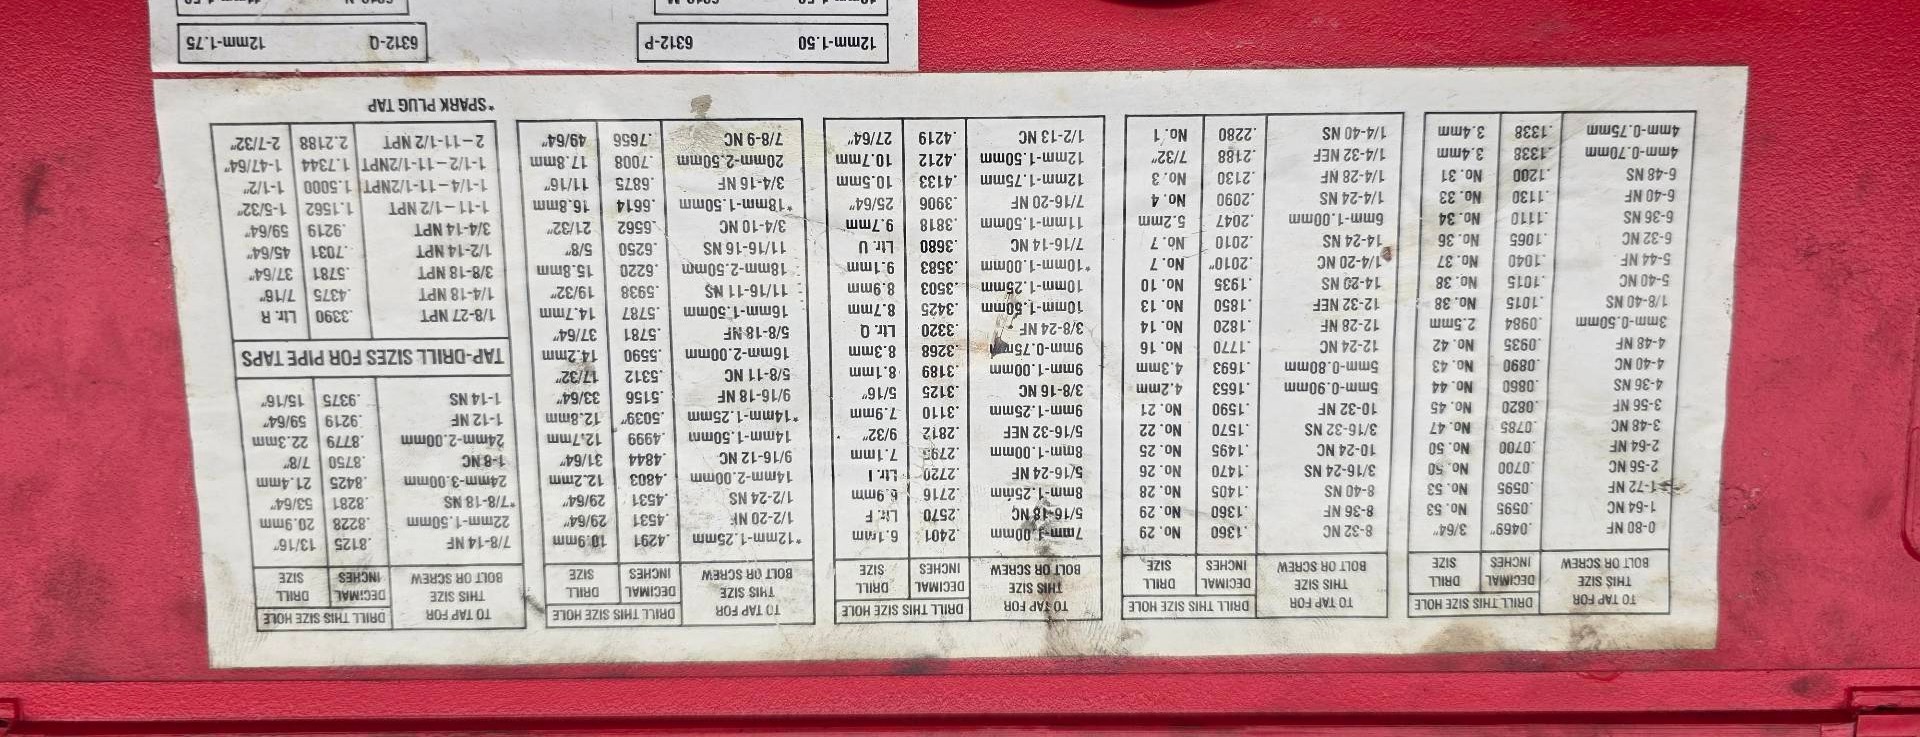 TO TAP FOR THIS SIZE BOLT OR SCREW | DRILL THIS SIZE HOLE
DECIMAL INCHES | DRILL SIZE
0-80 NF .0469" 3/64"
1-64 NC .0595 No. 53
1-72 NF .0595 No. 53
2-56 NC .0700 No. 50
2-64 NF .0700 No. 50
3-48 NC .0785 No. 47
3-56 NF .0820 No. 45
4-36 NS .0860 No. 44
4-40 NC .0890 No. 43
4-48 NF .0935 No. 42
3mm-0.50mm .0984 2.5mm
1/8-40 NS .1015 No. 38
5-40 NC .1015 No. 38
5-44 NF .1040 No. 37
6-32 NC .1065 No. 36
6-36 NS .1110 No. 34
6-40 NF .1130 No. 33
6-48 NS .1200 No. 31
4mm-0.70mm .1338 3.4mm
4mm-0.75mm .1338 3.4mm
TO TAP FOR THIS SIZE BOLT OR SCREW | DRILL THIS SIZE HOLE
DECIMAL INCHES | DRILL SIZE
8-32 NC .1360 No. 29
8-36 NF .1360 No. 29
8-40 NS .1405 No. 28
3/16-24 NS .1470 No. 26
10-24 NC .1495 No. 25
3/16-32 NS .1570 No. 22
10-32 NF .1590 No. 21
5mm-0.90mm .1653 4.2mm
5mm-0.80mm .1693 4.3mm
12-24 NC .1770 No. 16
12-28 NF .1820 No. 14
12-32 NEF .1850 No. 13
14-20 NS .1935 No. 10
1/4-20 NC .2010" No. 7
14-24 NS .2010 No. 7
6mm-1.00mm .2047 5.2mm
1/4-24 NS .2090 No. 4
1/4-28 NF .2130 No. 3
1/4-32 NEF .2188 7/32"
1/4-40 NS .2280 No. 1
TO TAP FOR THIS SIZE BOLT OR SCREW | DRILL THIS SIZE HOLE
DECIMAL INCHES | DRILL SIZE
7mm-1.00mm .2401 6.1mm
5/16-18 NC .2570 Ltr. F
8mm-1.25mm .2716 6.9mm
5/16-24 NF .2720 Ltr. I
8mm-1.00mm .2795 7.1mm
5/16-32 NEF .2812 9/32"
9mm-1.25mm .3110 7.9mm
3/8-16 NC .3125 5/16"
9mm-1.00mm .3189 8.1mm
9mm-0.75mm .3268 8.3mm
3/8-24 NF .3320 Ltr. Q
10mm-1.50mm .3425 8.7mm
10mm-1.25mm .3503 8.9mm
*10mm-1.00mm .3583 9.1mm
7/16-14 NC .3680 Ltr. U
11mm-1.50mm .3818 9.7mm
7/16-20 NF .3906 25/64"
12mm-1.75mm .4133 10.5mm
12mm-1.50mm .4212 10.7mm
1/2-13 NC .4219 27/64"
TO TAP FOR THIS SIZE BOLT OR SCREW | DRILL THIS SIZE HOLE
DECIMAL INCHES | DRILL SIZE
*12mm-1.25mm .4291 10.9mm
1/2-20 NF .4531 29/64"
1/2-24 NS .4531 29/64"
14mm-2.00mm .4803 12.2mm
9/16-12 NC .4844 31/64"
14mm-1.50mm .4999 12.7mm
*14mm-1.25mm .5039" 12.8mm
9/16-18 NF .5156 33/64"
5/8-11 NC .5312 17/32"
16mm-2.00mm .5590 14.2mm
5/8-18 NF .5781 37/64"
16mm-1.50mm .5787 14.7mm
11/16-11 NS .5938 19/32"
18mm-2.50mm .6220 15.8mm
11/16-16 NS .6250 5/8"
3/4-10 NC .6562 21/32"
*18mm-1.50mm .6614 16.8mm
3/4-16 NF .6875 11/16"
20mm-2.50mm .7008 17.8mm
7/8-9 NC .7656 49/64"
TO TAP FOR THIS SIZE BOLT OR SCREW | DRILL THIS SIZE HOLE
DECIMAL INCHES | DRILL SIZE
7/8-14 NF .8125 13/16"
22mm-1.50mm .8228 20.9mm
*7/8-18 NS .8281 53/64"
24mm-3.00mm .8425 21.4mm
1-8 NC .8750 7/8"
24mm-2.00mm .8779 22.3mm
1-12 NF .9219 59/64"
1-14 NS .9375 15/16"
TAP-DRILL SIZES FOR PIPE TAPS
1/8-27 NPT .3390 Ltr. R
1/4-18 NPT .4375 7/16"
3/8-18 NPT .5781 37/64"
1/2-14 NPT .7031 45/64"
3/4-14 NPT .9219 59/64"
1-11-1/2 NPT 1.1562 1-5/32"
1-1/4-11-1/2NPT 1.5000 1-1/2"
1-1/2-11-1/2NPT 1.7344 1-47/64"
2-11-1/2 NPT 2.2188 2-7/32"
*SPARK PLUG TAP
12mm-1.50 6312-P
6312-Q 12mm-1.75